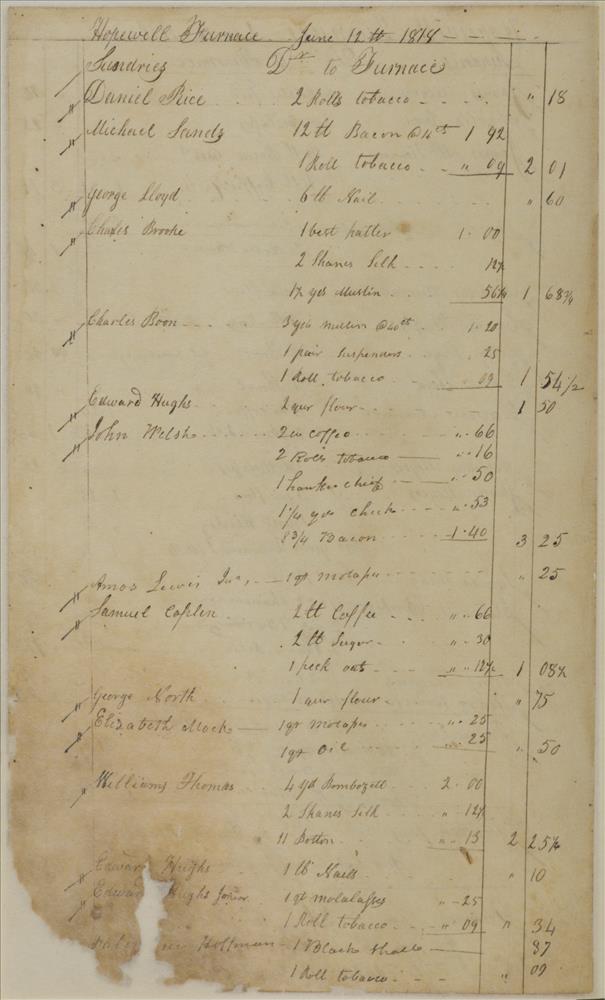 Hopewell Furnace June 12th 1818
Sundries Dr to Furnace
Daniel Rice 2 Rolls tobacco " 18
Michael Sands 12 lb Bacon @ 1 92
1 Roll tobacco " 09 2 01
George Lloyd 6 lb Nail " 60
Charles Brooke 1 best hatter 1 00
2 Skanes Silk 12½
yds Muslin 56¼ 1 68¾
Charles Boon 3 yds muslin @ 40 1 20
1 pair Suspenders 25
1 Roll tobacco 09 1 54½
Edward Hughs 2 qur flour 1 50
John Welsh 2 lb Coffee " 66
2 Rolls tobacco " 16
1 hankerchief " 50
1¼ yds Check " 53
8¾ Bacon 1 40 3 25
Amos Lewis Jur, 1 qt molases " 25
Samuel Caplen 2 lb Coffee " 66
2 lb Sugar " 30
1 peck oats " 12½ 1 08½
George North 1 qur flour " 75
Elizabeth Mock 1 qt molases " 25
1 qt Oil 25 " 50
Williams Thomas 4 yd Bombozett 2 00
2 Skanes Silk " 12½
11 Botton " 13 2 25½
Edward Hughs 1 lb Nails " 10
Edward Hughs Junior 1 qt molalasses " 25
1 Roll tobacco " 09 " 34
Hoffman 1 Black Shall 87
1 Roll tobacco " 09